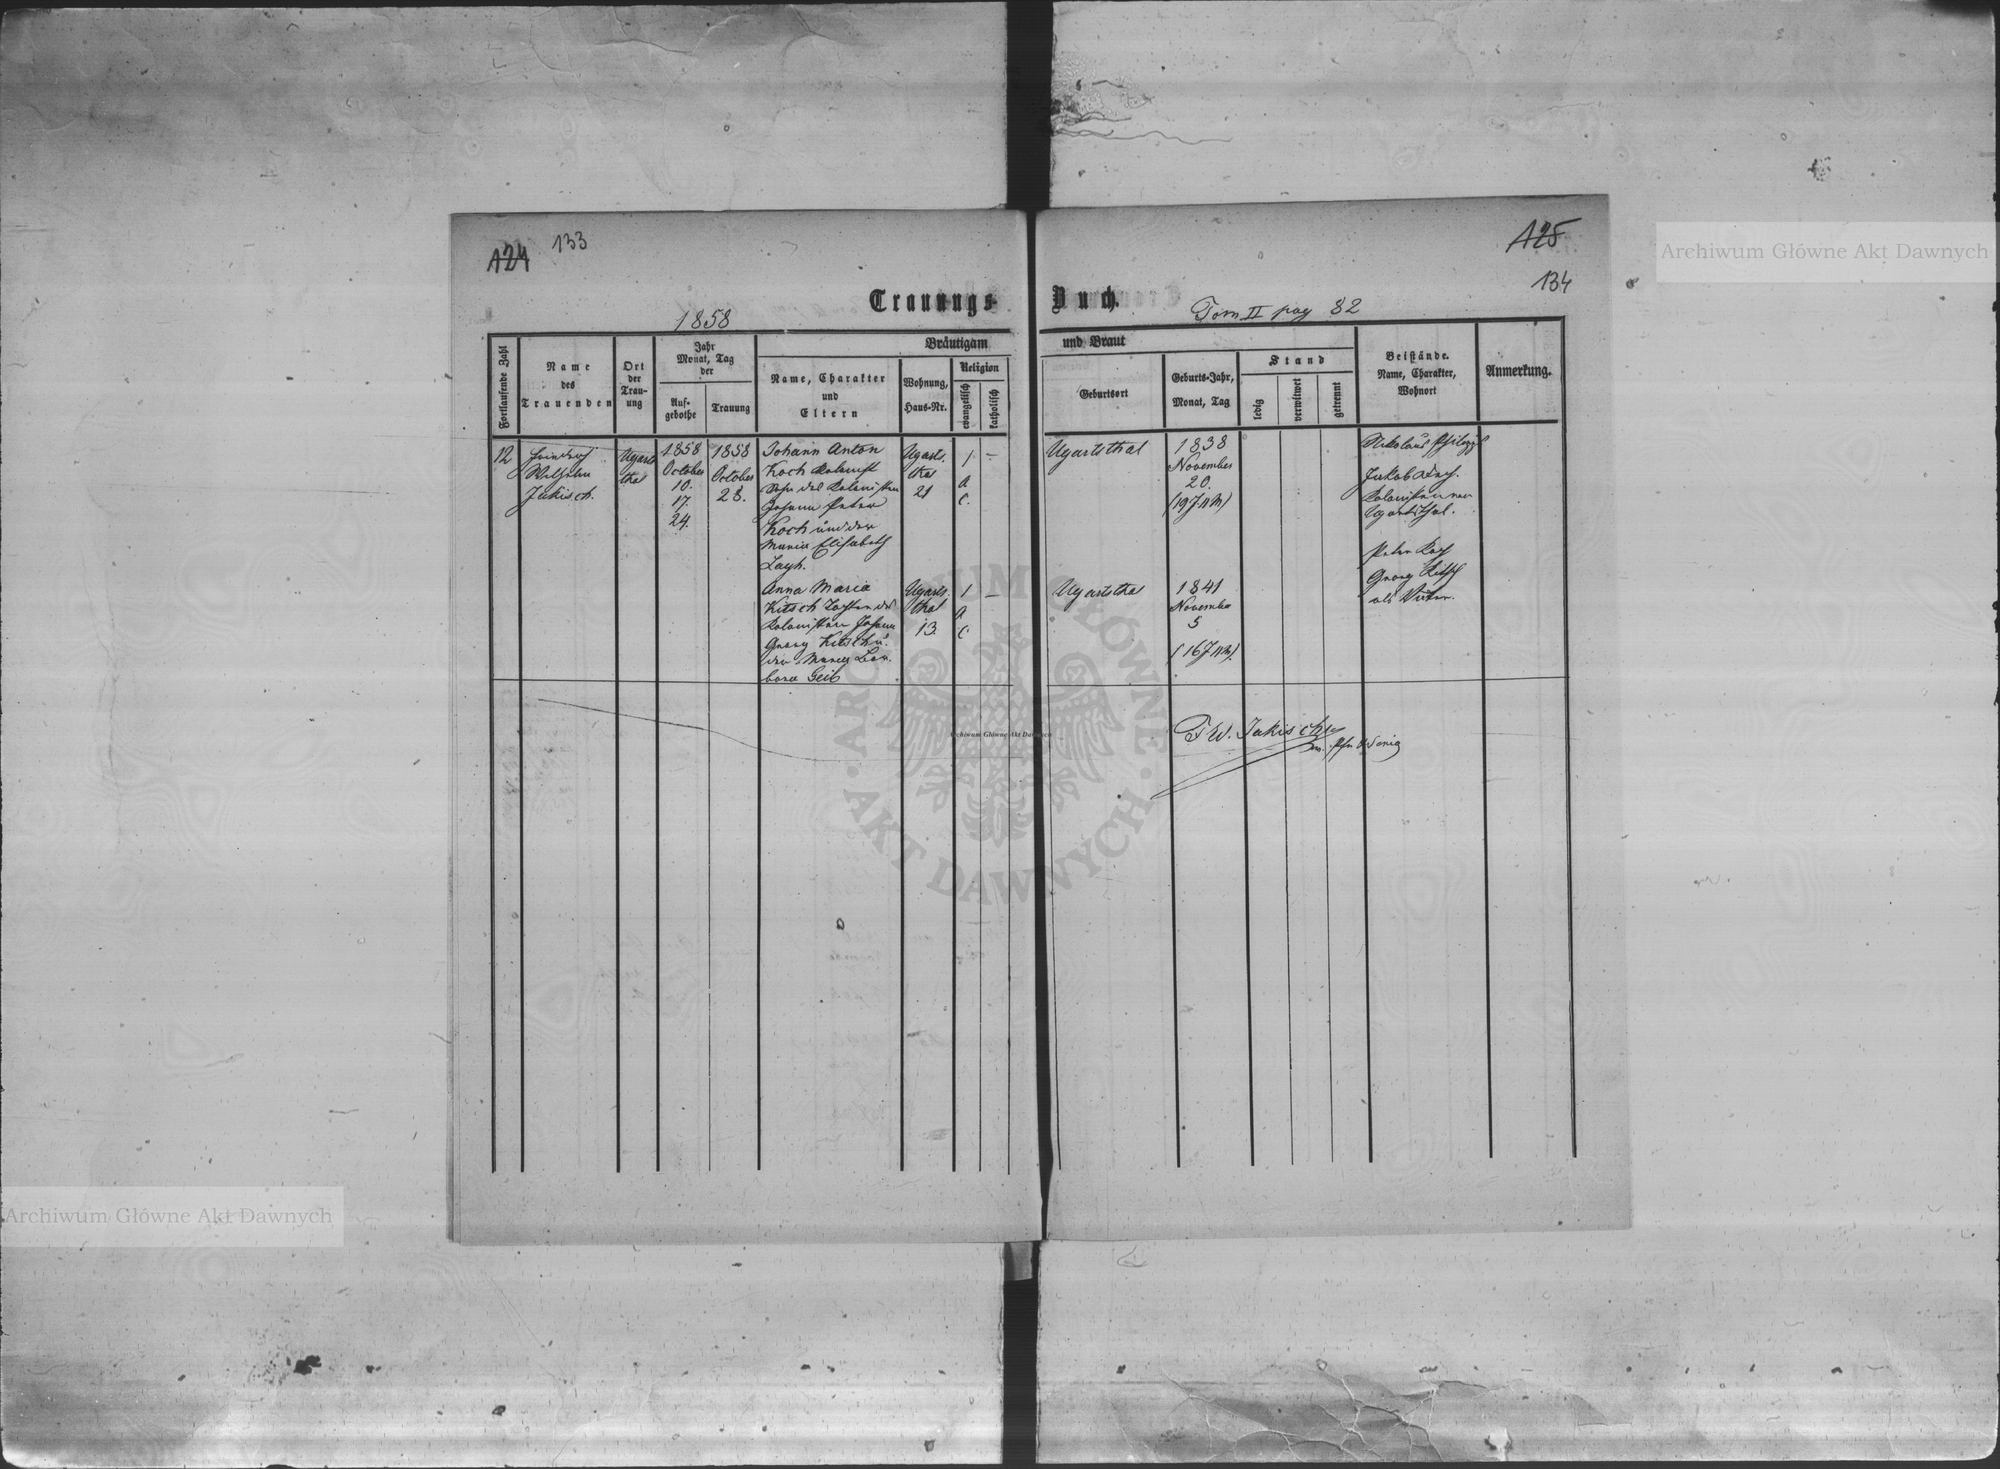 124 133
125
134
Trauungs-Buch.
1858
Tom II pag 82
Fortlaufende Zahl
Name des Trauenden
Ort der Trau-ung
Jahr Monat, Tag der
Auf-gebothe
Trauung
Bräutigam und Braut
Name, Charakter und Eltern
Wohnung, Haus-Nr.
Religion
evangelisch
katholisch
Geburtsort
Geburts-Jahr, Monat, Tag
Stand
ledig
verwitwet
getrennt
Beistände. Name, Charakter, Wohnort
Anmerkung.
12
Friedrich
Wilhelm
Jakisch.
Ugarts
thal
1858
October
10.
17.
24.
1858
October
28.
Johann Anton
Koch Kolonist
Sohn des Kolonisten
Johann Peter
Koch und der
Maria Elisabeth
Ugarts.
thal
21
1 —
a
c.
Ugartsthal
1838
November
20.
(19J 11M)
Nikolaus
Jakob
Kolonisten von
Ugartsthal.
Peter Koch
Georg Kitsch
als Väter.
Anna Maria
Kitsch Tochter des
Kolonisten Johann
Georg Kitsch u.
der Maria Bar-
bara Geib
Ugarts.
thal
13.
1 —
a
c
Ugartsthal
1841
November
5
(16J 11M).
F W. Jakisch
Archiwum Główne Akt Dawnych
Archiwum Główne Akt Dawnych
Archiwum Główne Akt Dawnych
ARCHIWUM GŁÓWNE
· AKT DAWNYCH ·